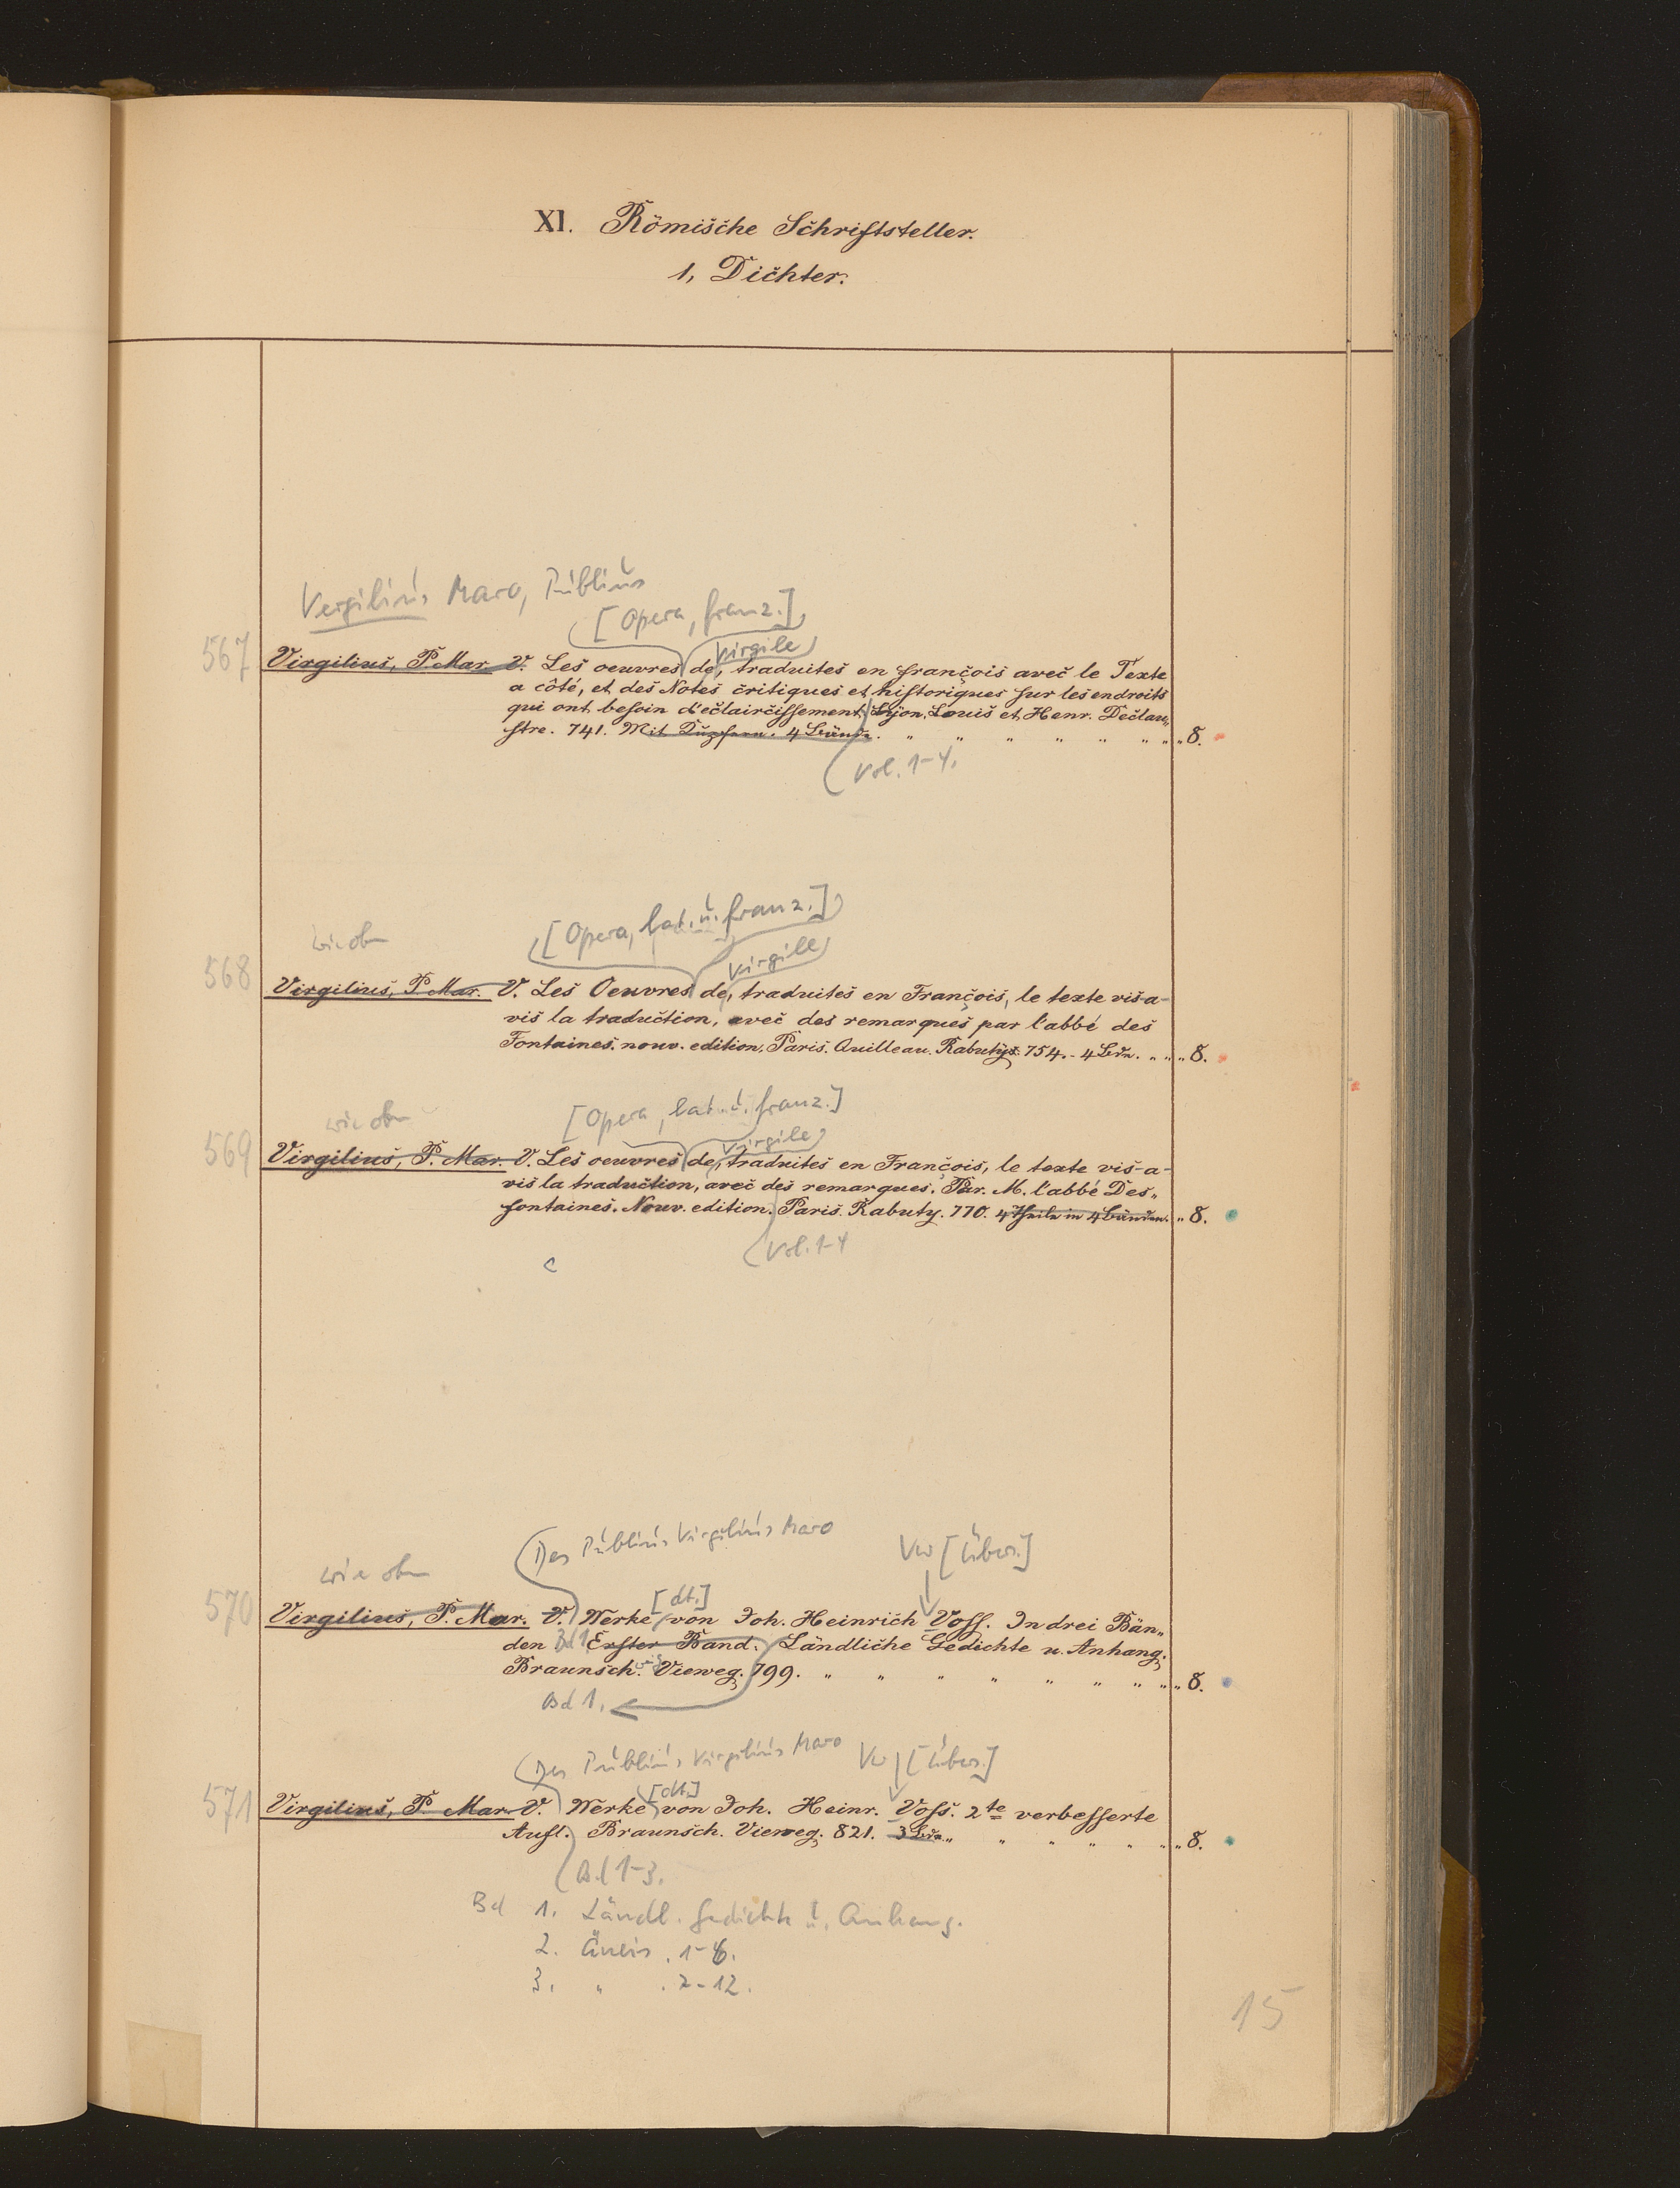 XI. Römische Schriftsteller.
1, Dichter.
Vergilius Maro, Publius
[Opera, franz.]
Virgile
567 Virgilius, P. Mar. V. Les oeuvres de, traduites en françois avec le Texte
a côté, et des Notes critiques et historiques sur les endroits
qui ont besoin d'eclaircissement, Lyon, Louis et Henr. Declau„
stre. 741. Mit Kupfern. 4 Bände. „ „ „ „ „ „ „ „ 8.
Vol. 1-4.
[Opera, lat. u. franz.]
wie oben
Virgile
568 Virgilius, P. Mar. V. Les Oeuvres de, traduites en François, le texte vis-a-
vis la traduction, avec des remarques par l'abbé des
Fontaines. nouv. edition, Paris. Quilleau. Rabutÿs 754. - 4 Bde. „ „ „ 8.
wie oben
[Opera, lat. u. franz.]
Virgile
569 Virgilius, P. Mar. V. Les oeuvres de, traduites en François, le texte vis-a-
vis la traduction, avec des remarques. Par. M. l'abbé Des„
fontaines. Nouv. edition. Paris. Rabuty. 770. 4 Theile in 4 Bänden. „ 8.
Vol. 1-4
c
Des Publius Virgilius Maro
Vw [Übers.]
wie oben
[dt.]
570 Virgilius, P. Mar. V. Werke von Joh. Heinrich Voss. In drei Bän„
den Bd 1 Erster Band. Ländliche Gedichte u. Anhang.
Braunsch. Vieweg. 799. „ „ „ „ „ „ „ „ 8.
Bd 1.
Des Publius Virgilius Maro Vw [Übers.]
[dt.]
571 Virgilius, P. Mar. V. Werke von Joh. Heinr. Voss. 2te verbesserte
Aufl. Braunsch. Vieweg. 821. 3 Bde. „ „ „ „ „ „ „ 8.
Bd 1-3.
Bd 1. Ländl. Gedichte u. Anhang.
2. Äneis. 1-6.
3. „ . 7-12.
15